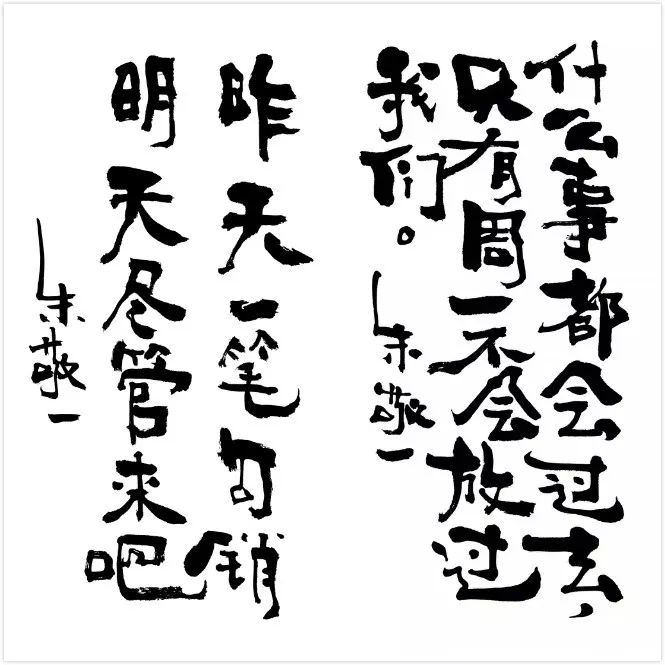 什么事都会过去，
只有周一不会放过
我们。
朱敬一
昨天一笔勾销
明天尽管来吧
朱敬一